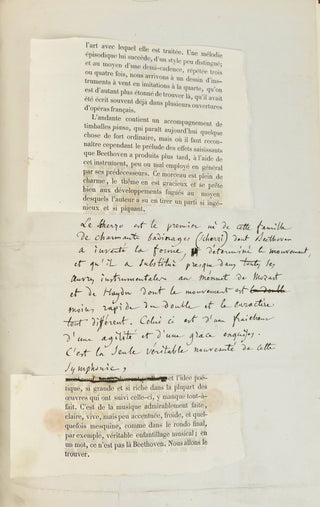 l'art avec lequel elle est traitée. Une mélodie
épisodique lui succède, d'un style peu distingué;
et au moyen d'une demi-cadence, répétée trois
ou quatre fois, nous arrivons à un dessin d'ins-
truments à vent en imitations à la quarte, qu'on
est d'autant plus étonné de trouver là, qu'il avait
été écrit souvent déjà dans plusieurs ouvertures
d'opéras français.
L'andante contient un accompagnement de
timballes piano, qui paraît aujourd'hui quelque
chose de fort ordinaire, mais où il faut recon-
naître cependant le prélude des effets saisissants
que Beethoven a produits plus tard, à l'aide de
cet instrument, peu ou mal employé en général
par ses prédécesseurs. Ce morceau est plein de
charme, le thême en est gracieux et se prête
bien aux développements fugués au moyen
desquels l'auteur a su en tirer un parti si ingé-
nieux et si piquant.
Le Scherzo est le premier né de cette famille
de charmants badinages (scherzi) dont Beethoven
a inventé la forme, déterminé le mouvement,
et qu'il a substitué presque dans toutes ses
œuvres instrumentales au menuet de Mozart
et de Haydn dont le mouvement est
moins rapide du double et le caractère
tout différent. Celui ci est d'une fraîcheur
d'une agilité et d'une grâce exquises.
C'est la seule véritable nouveauté de cette
Symphonie,
et l'idée poé-
tique, si grande et si riche dans la plupart des
œuvres qui ont suivi celle-ci, y manque tout-à-
fait. C'est de la musique admirablement faite,
claire, vive, mais peu accentuée, froide, et quel-
quefois mesquine, comme dans le rondo final,
par exemple, véritable enfantillage musical; en
un mot, ce n'est pas là Beethoven. Nous allons le
trouver.